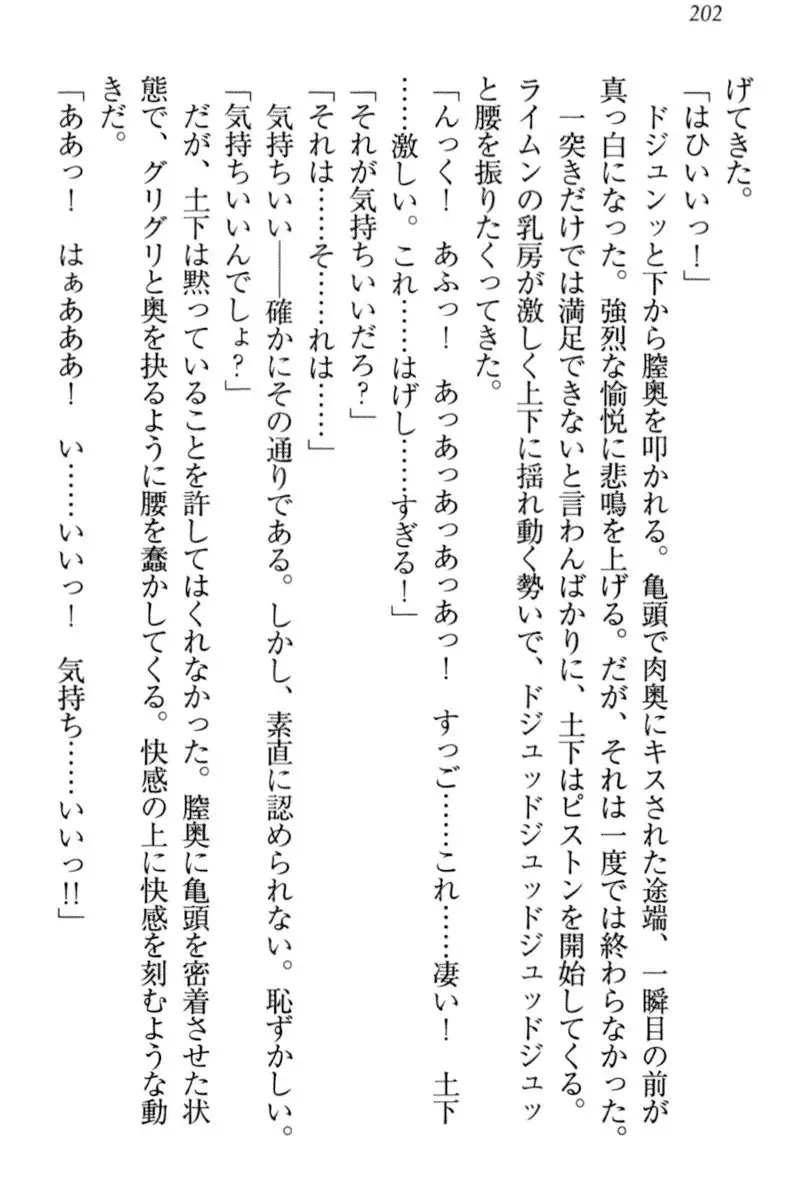 202
げてきた。
「はひいいっ！」
　ドジュンッと下から膣奥を叩かれる。亀頭で肉奥にキスされた途端、一瞬目の前が
真っ白になった。強烈な愉悦に悲鳴を上げる。だが、それは一度では終わらなかった。
　一突きだけでは満足できないと言わんばかりに、土下はピストンを開始してくる。
ライムンの乳房が激しく上下に揺れ動く勢いで、ドジュッドジュッドジュッドジュッ
と腰を振りたくってきた。
「んっく！　あふっ！　あっあっあっあっあっ！　すっご……これ……凄い！　土下
……激しい。これ……はげし……すぎる！」
「それが気持ちいいだろ？」
「それは……そ……れは……」
　気持ちいい――確かにその通りである。しかし、素直に認められない。恥ずかしい。
「気持ちいいんでしょ？」
　だが、土下は黙っていることを許してはくれなかった。膣奥に亀頭を密着させた状
態で、グリグリと奥を抉るように腰を蠢かしてくる。快感の上に快感を刻むような動
きだ。
「ああっ！　はぁあああ！　い……いいっ！　気持ち……いいっ!!」